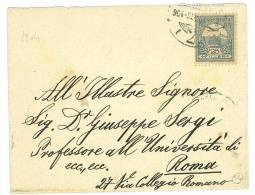 1904
904
25
All'Illustre Signore
Sig. Dr. Giuseppe Sergi
Professore all'Università di
ecc, ecc. Roma
27 Via Collegio Romano